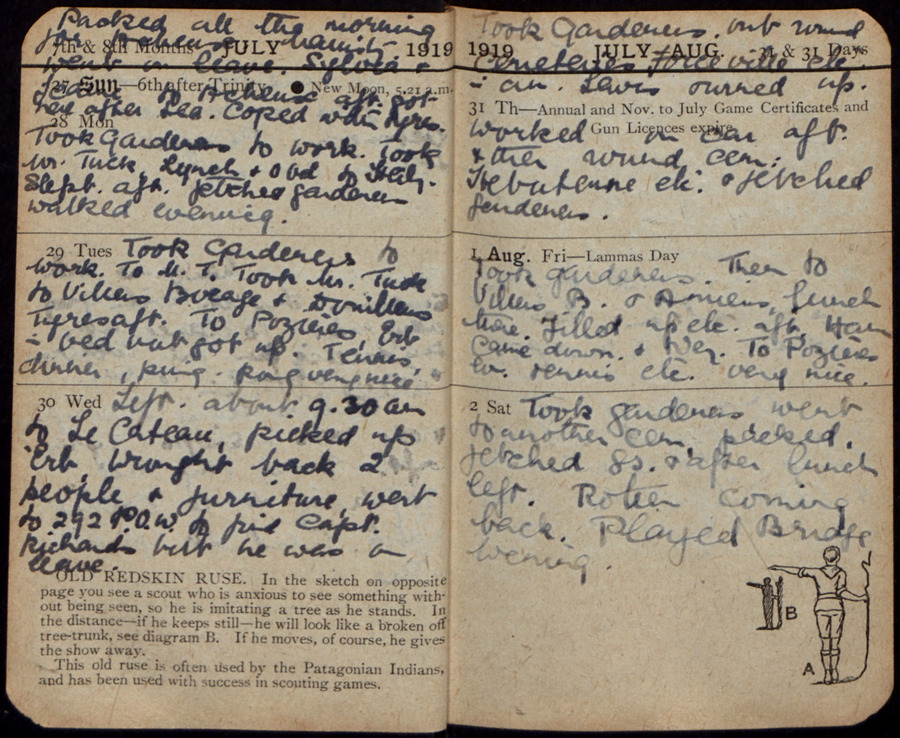 Packed all the morning
7th & 8th Months JULY 1919
went on leave. Sylvia &
27 Sun—6th after Trinity ● New Moon, 5.21 a.m.
aft. got
here after tea. Coped with tyres.
28 Mon
Took Gardeners to work. Took
Mr. Tuck, Lynch & Obd to
Slept. aft. fetched gardeners
walked evening.
29 Tues Took Gardeners to
work. To M. T. Took Mr. Tuck
to Villers Bocage & Doullens
Tyres aft. To Pozieres Erb
in bed but got up. Tennis,
dinner, ping-pong very nice.
30 Wed Left. about 9.30 am
to Le Cateau, picked up
Erb brought back 2
people & furniture, went
to 292 P.O.W. to find Capt.
Richards but he was on
leave.
OLD REDSKIN RUSE. In the sketch on opposite
page you see a scout who is anxious to see something with-
out being seen, so he is imitating a tree as he stands. In
the distance—if he keeps still—he will look like a broken off
tree-trunk, see diagram B. If he moves, of course, he gives
the show away.
This old ruse is often used by the Patagonian Indians,
and has been used with success in scouting games.
Took Gardeners. out round
1919 JULY—AUG. 31 & 31 Days
Cemeteries Forceville etc.
in car. Lewis turned up.
31 Th—Annual and Nov. to July Game Certificates and
Gun Licences expire.
Worked on car aft.
& then round cem:
Hebuterne etc. & fetched
gardeners.
1 Aug. Fri—Lammas Day
Took gardeners. Then to
Villers B. & Amiens, lunch
there. Filled up etc. aft.
came down. & To Pozieres
ev. tennis etc. very nice.
2 Sat Took gardeners went
to another cem packed.
fetched gs. & after lunch
left. Rotten coming
back. Played Bridge
evening.
B
A